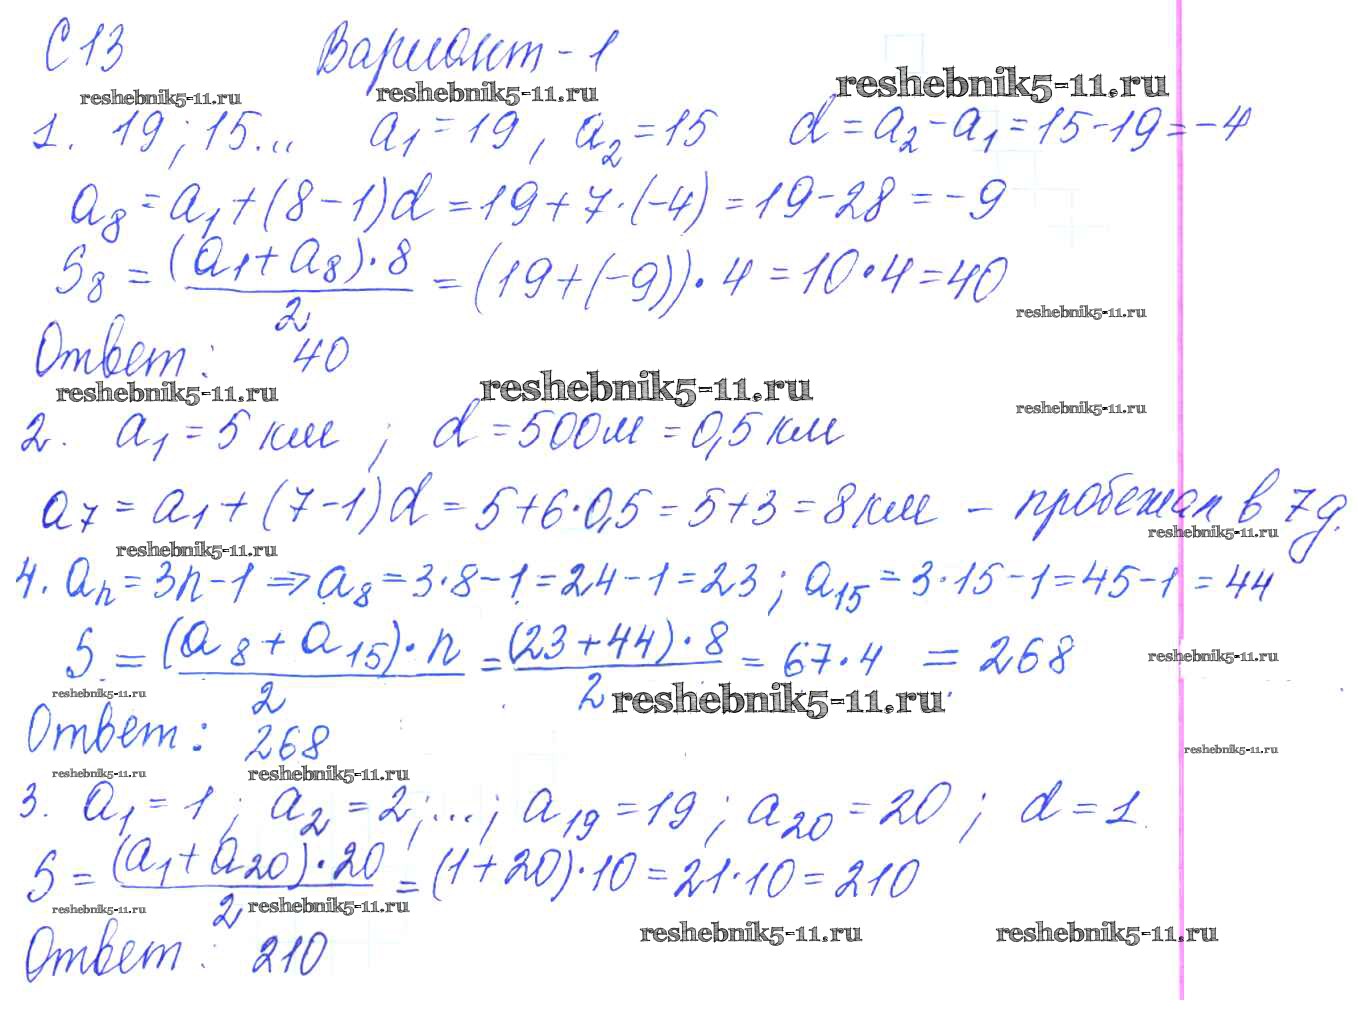 С 13 Вариант - 1
reshebnik5-11.ru reshebnik5-11.ru reshebnik5-11.ru
1. 19; 15... a₁ = 19, a₂ = 15 d = a₂ - a₁ = 15 - 19 = -4
a₈ = a₁ + (8 - 1)d = 19 + 7·(-4) = 19 - 28 = -9
S₈ = (a₁ + a₈)·8 / 2 = (19 + (-9))·4 = 10·4 = 40
reshebnik5-11.ru
Ответ: 40
reshebnik5-11.ru reshebnik5-11.ru reshebnik5-11.ru
2. a₁ = 5 км; d = 500 м = 0,5 км
a₇ = a₁ + (7 - 1)d = 5 + 6·0,5 = 5 + 3 = 8 км - пробежал в 7 д.
reshebnik5-11.ru reshebnik5-11.ru
4. aₙ = 3n - 1 => a₈ = 3·8 - 1 = 24 - 1 = 23; a₁₅ = 3·15 - 1 = 45 - 1 = 44
S = (a₈ + a₁₅)·n / 2 = (23 + 44)·8 / 2 = 67·4 = 268
reshebnik5-11.ru reshebnik5-11.ru reshebnik5-11.ru
Ответ: 268
reshebnik5-11.ru reshebnik5-11.ru reshebnik5-11.ru
3. a₁ = 1; a₂ = 2; ...; a₁₉ = 19; a₂₀ = 20; d = 1
S = (a₁ + a₂₀)·20 / 2 = (1 + 20)·10 = 21·10 = 210
reshebnik5-11.ru reshebnik5-11.ru reshebnik5-11.ru reshebnik5-11.ru
Ответ: 210